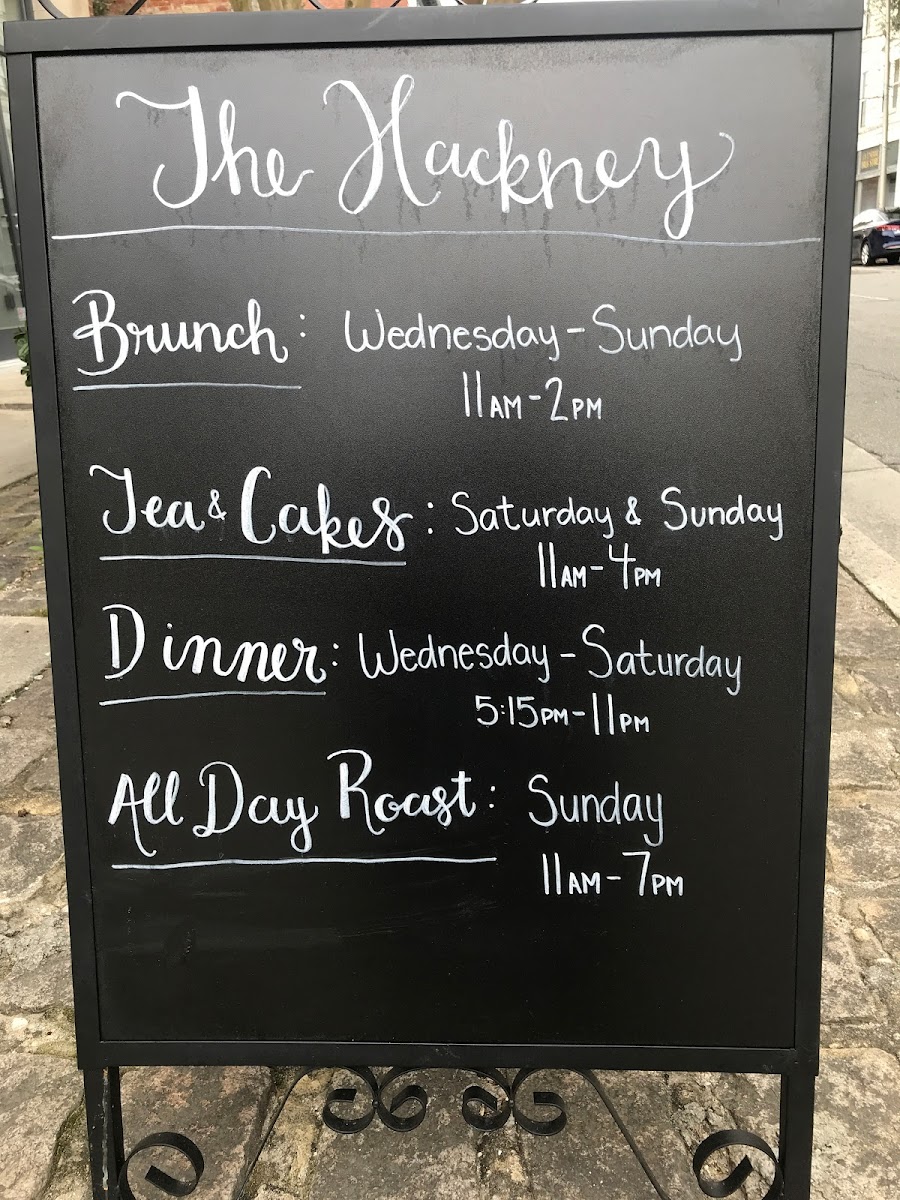 The Hackney
Brunch: Wednesday - Sunday
11AM - 2PM
Tea & Cakes: Saturday & Sunday
11AM - 4PM
Dinner: Wednesday - Saturday
5:15PM - 11PM
All Day Roast: Sunday
11AM - 7PM